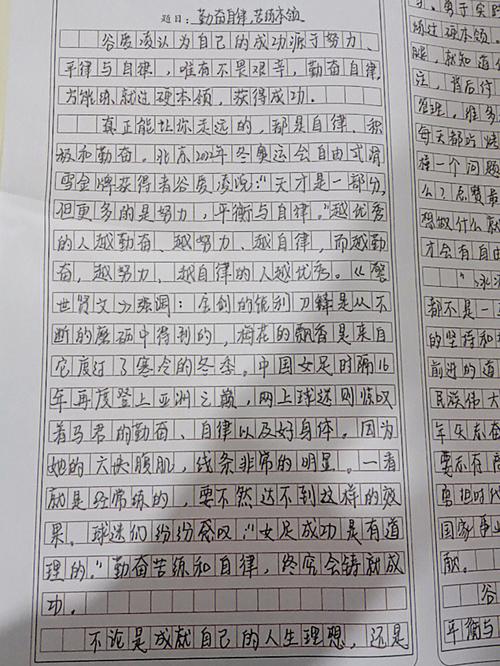 题目：勤奋自律，苦练本领
谷爱凌认为自己的成功源于努力、
平律与自律，唯有不畏艰辛，勤奋自律，
方能练就过硬本领，获得成功。
真正能让你走远的，都是自律、积
极和勤奋。北京2022年冬奥运会自由式滑
雪金牌获得者谷爱凌说：“天才是一部分，
但更多的是努力，平衡与自律。”越优秀
的人越勤奋、越努力、越自律，而越勤
奋，越努力、越自律的人越优秀。《警
世贤文》强调：宝剑的锐利刀锋是从不
断的磨砺中得到的，梅花的飘香是来自
它度过了寒冷的冬季。中国女足时隔16
年再度登上亚洲之巅，网上球迷则惊叹
着马君的勤奋、自律以及好身体。因为
她的六块腹肌，线条非常的明显。一看
就是经常练的，要不然达不到这样的效
果。球迷们纷纷感叹：“女足成功是有道
理的。”勤奋苦练和自律，终究会铸就成
功。
不论是成就自己的人生理想，还是
勇于实
硬本领
就知道
注，背后付
管理。难多
每天都吃
一个问题
么？总赞最
想做什么就
才会有自由
都不是一
的坚持和
前进的道
民族伟大
年矢志奋
要志存高
担时代
国家事业
献。
谷
平衡与